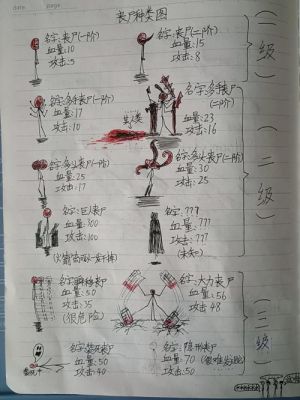 date
page
丧尸种类图
名字:丧尸(一阶)
血量:10
攻击:5
名字:丧尸(二阶)
血量:15
攻击:8
(一级)
名字:多手丧尸(一阶)
血量:17
攻击:10
名字:多手丧尸
(二阶)
血量:23
攻击:16
名字:多头丧尸(一阶)
血量:25
攻击:17
名字:多头丧尸(二阶)
血量:30
攻击:25
(二级)
名字:巨丧尸
血量:300
攻击:100
名字:???
血量:???
攻击:???
(未知)
血量:50
攻击:35
(很危险)
名字:大力丧尸
血量:56
攻击:48
(三级)
血量:50
攻击:40
名字:隐形丧尸
血量:70
攻击:50